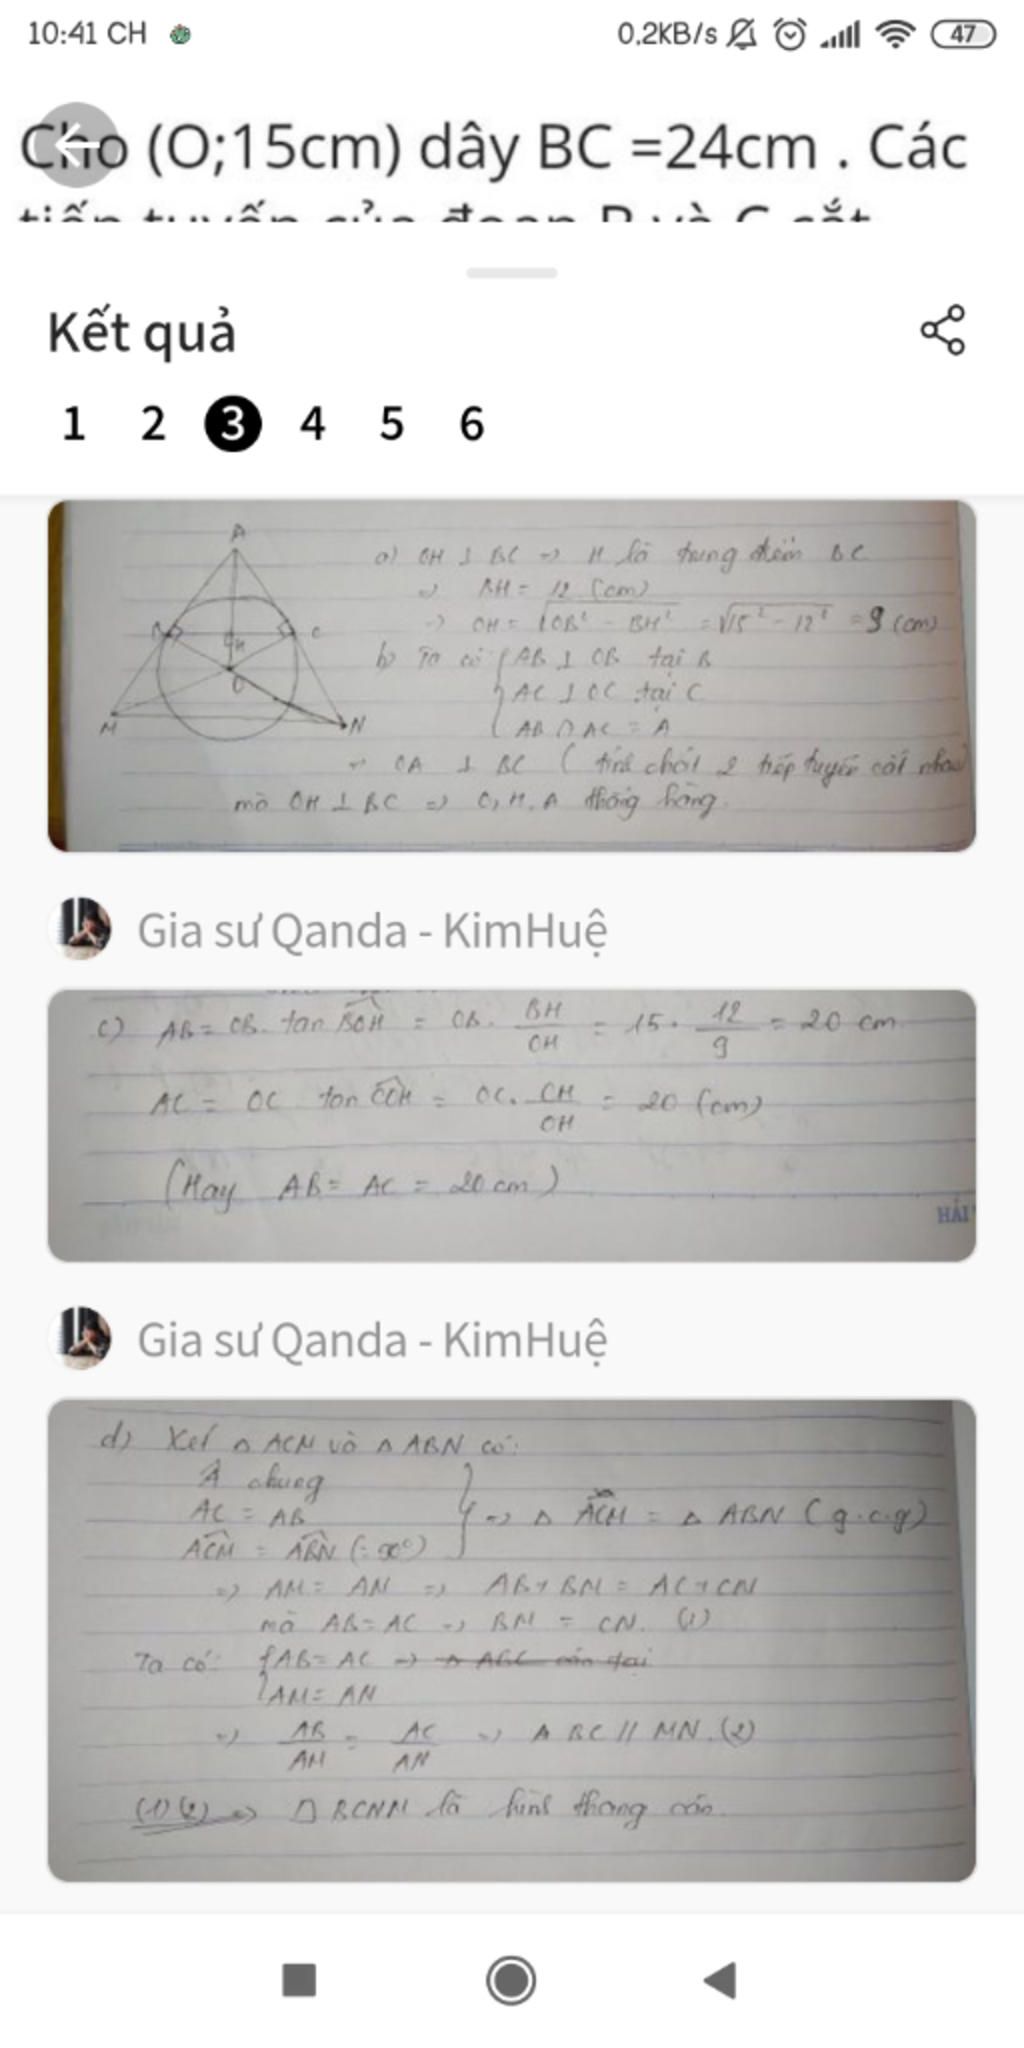 10:41 CH
0,2KB/s
47
Cho (O;15cm) dây BC =24cm . Các
tiếp tuyến của đoạn B và C cắt
Kết quả
1 2 3 4 5 6
A
a) OH ⊥ BC => H là trung điểm BC
=> BH = 12 (cm)
=> OH = √OB² - BH² = √15² - 12² = 9 (cm)
b) Ta có { AB ⊥ OB tại B
AC ⊥ OC tại C
AB ∩ AC = A
C
H
O
M
N
=> OA ⊥ BC ( tính chất 2 tiếp tuyến cắt nhau)
mà OH ⊥ BC => O, H, A thẳng hàng.
Gia sư Qanda - KimHuệ
c) AB = OB. tan BOH = OB. BH/OH = 15. 12/9 = 20 cm
AC = OC tan COH = OC. CH/OH = 20 (cm)
(Hay AB = AC = 20 cm)
HẢI
Gia sư Qanda - KimHuệ
d) Xét △ ACM và △ ABN có:
A chung
AC = AB
ACM = ABN (= 90°)
=> △ ACM = △ ABN (g.c.g)
=> AM = AN => AB + BM = AC + CN
mà AB = AC => BM = CN. (1)
Ta có: { AB = AC =>
AM = AN
=> AB/AM = AC/AN => BC // MN. (2)
(1)(2) => BCNM là hình thang cân.